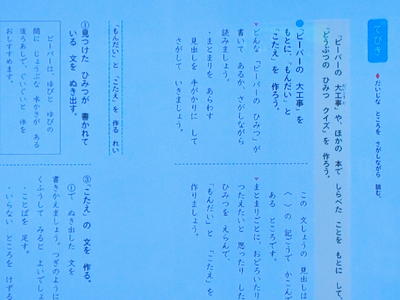 てびき
だいじな ところを さがしながら 読む。
「ビーバーの 大工事」や、ほかの 本で しらべた ことを もとに して、
「どうぶつの ひみつ クイズ」を 作ろう。
●「ビーバーの 大工事」を
もとに、「もんだい」と
「こたえ」を 作ろう。
どんな 「ビーバーの ひみつ」が
書いて あるか、さがしながら
読みましょう。
・まとまりを あらわす
見出しを 手がかりに して
さがして いきましょう。
この 文しょうの 見出しは
〈 〉の 記ごうで かこんで
ある ところです。
まとまりごとに、おどろいたり
つたえたいと 思ったり した
ひみつを えらんで、
「もんだい」と 「こたえ」を
作りましょう。
「もんだい」と 「こたえ」を 作る れい
①見つけた ひみつが、書かれて
いる 文を ぬき出す。
ビーバーは、ゆびと ゆびの
間に じょうぶな 水かきが ある
後ろあしで、ぐいぐいと 体を
おしすすめます。
③「こたえ」の 文を 作る。
①で ぬき出した 文を
書きかえましょう。つぎのように
くふうして みると よいでしょ
・ことばを 足す。
・いらない ところを けずる